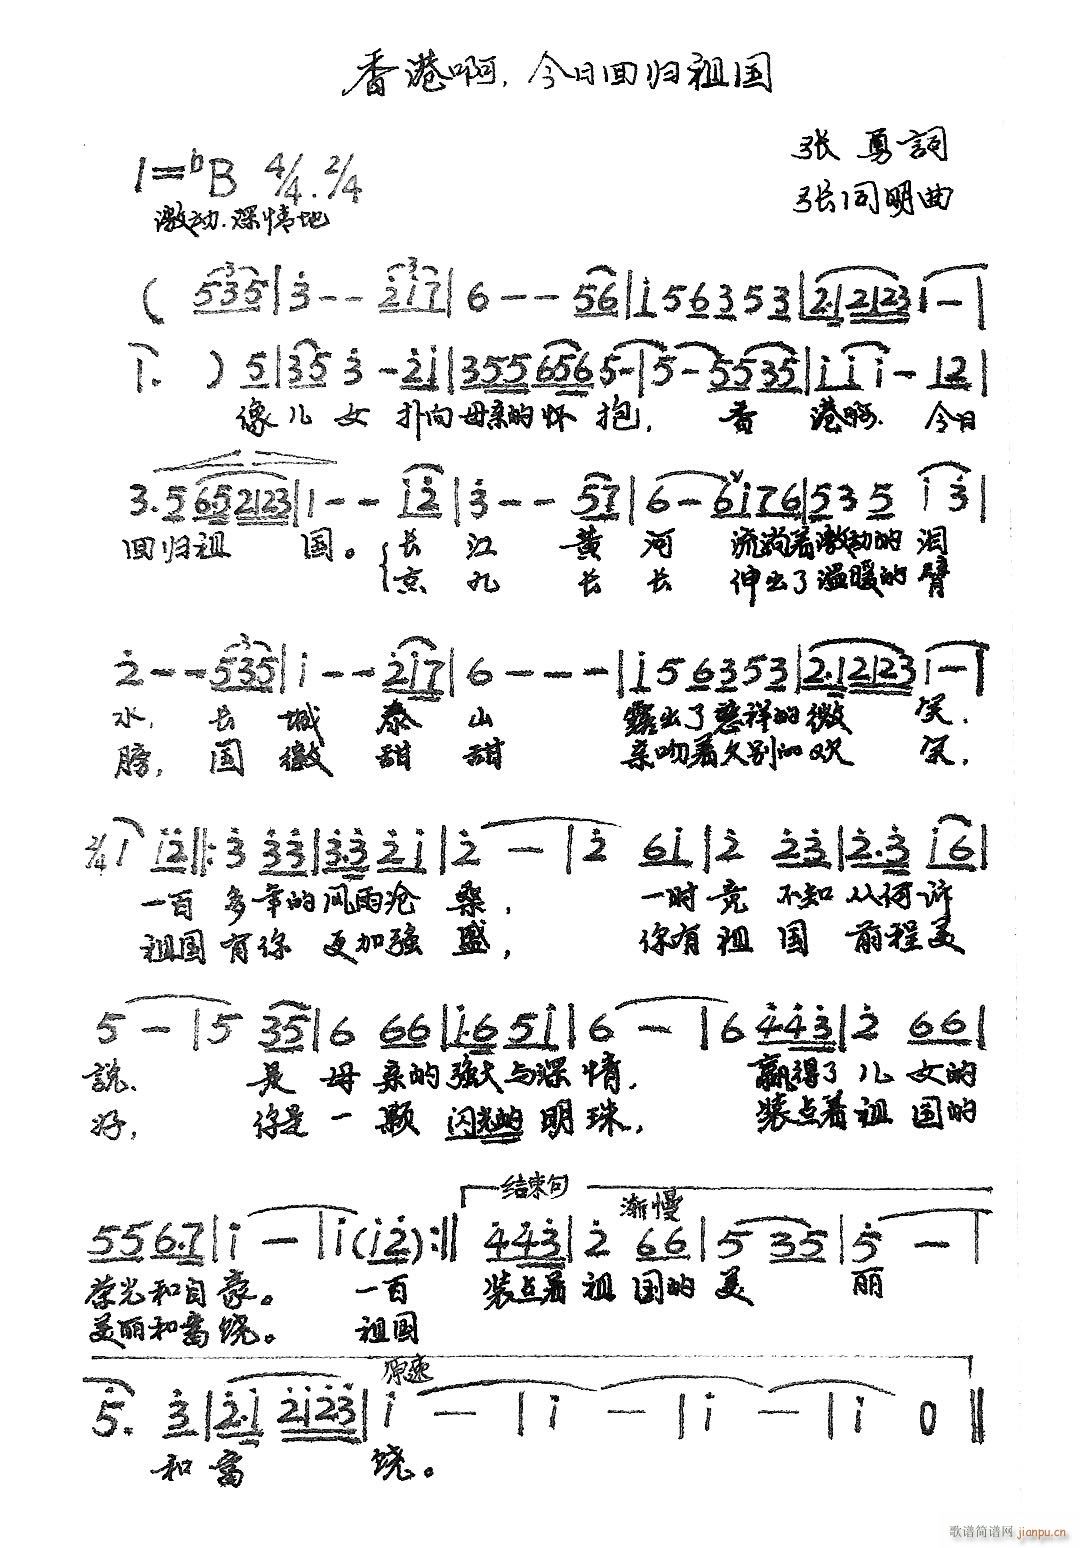 香港啊,今日回归祖国
1=♭B 4/4.2/4
张勇詞
激动.深情地
张同明曲
( 5 3 5 | 3 - - 2 i 7 | 6 - - 5 6 | i 5 6 3 5 3 | 2. 1 2 1 2 3 1 - |
1. ) 5 | 3 5 3 - 2 i | 3 5 5 6 5 6 5 - | 5 - 5 5 3 5 | i i i - 1 2 |
像儿女 扑向母亲的怀抱, 香港啊. 今日
3. 5 6 5 2 1 2 3 | 1 - - i 2 | 3 - - 5 7 | 6 - 6 i 7 6 | 5 3 5 i 3 |
回归祖国。 长江 黄河 流淌着激动的泪
京九 长长 伸出了温暖的臂
2 - - 5 3 5 | i - - 2 i 7 | 6 - - - | i 5 6 3 5 3 | 2. 1 2 1 2 3 i - |
水, 长城 泰山 露出了慈祥的微笑.
膀, 国徽 甜甜 亲吻着久别的欢笑,
2/4 1 i 2 ‖: 3 3 3 | 3. 3 2 i | 2 - | 2 6 i | 2 2 3 | 2. 3 i 6 |
一百多年的风雨沧桑, 一时竟不知从何诉
祖国有你更加强盛, 你有祖国前程美
5 - | 5 3 5 | 6 6 6 | i. 6 5 i | 6 - | 6 4 4 3 | 2 6 6 |
說. 是母亲的强大与深情, 赢得了儿女的
好, 你是一颗闪光的明珠, 装点着祖国的
结束句
渐慢
5 5 6. 7 | i - | i ( i 2 ) :‖ 4 4 3 | 2 6 6 | 5 3 5 | 5 - |
荣光和自豪。 一百 装点着祖国的美丽
美丽和富饶。 祖国
原速
5. 3 | 2. i 2 i 2 3 | i - | i - | i - | i 0 ‖
和富饶。
歌谱简谱网 jianpu.cn